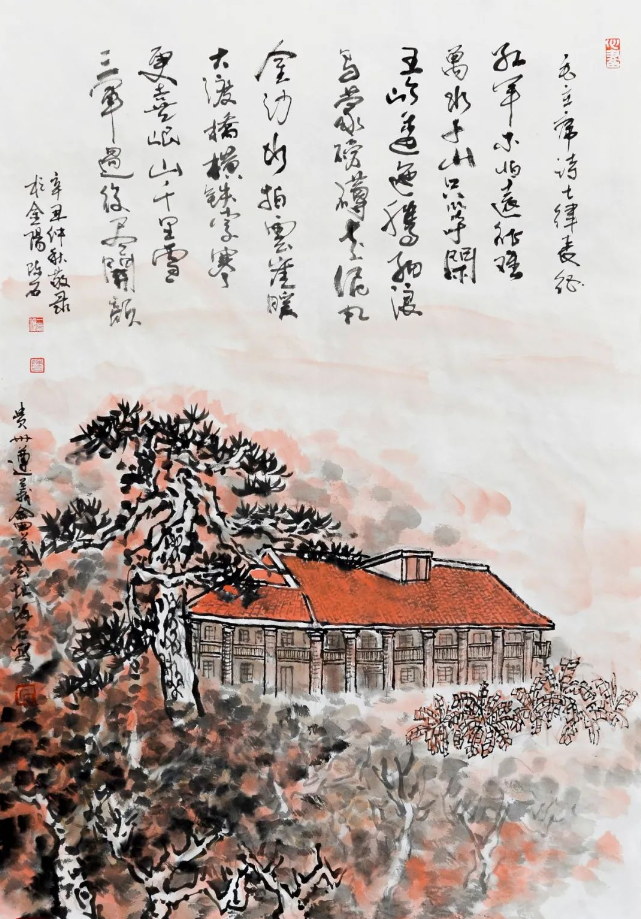 毛主席诗七律長征
红军不怕遠征难
萬水千山只等閑
五岭逶迤腾细浪
乌蒙磅礴走泥丸
金沙水拍雲崖暖
大渡橋横铁索寒
更喜岷山千里雪
三軍過後尽開颜
辛丑仲秋敬录
於金陽 陈石
貴州遵義會議会址陈石寫